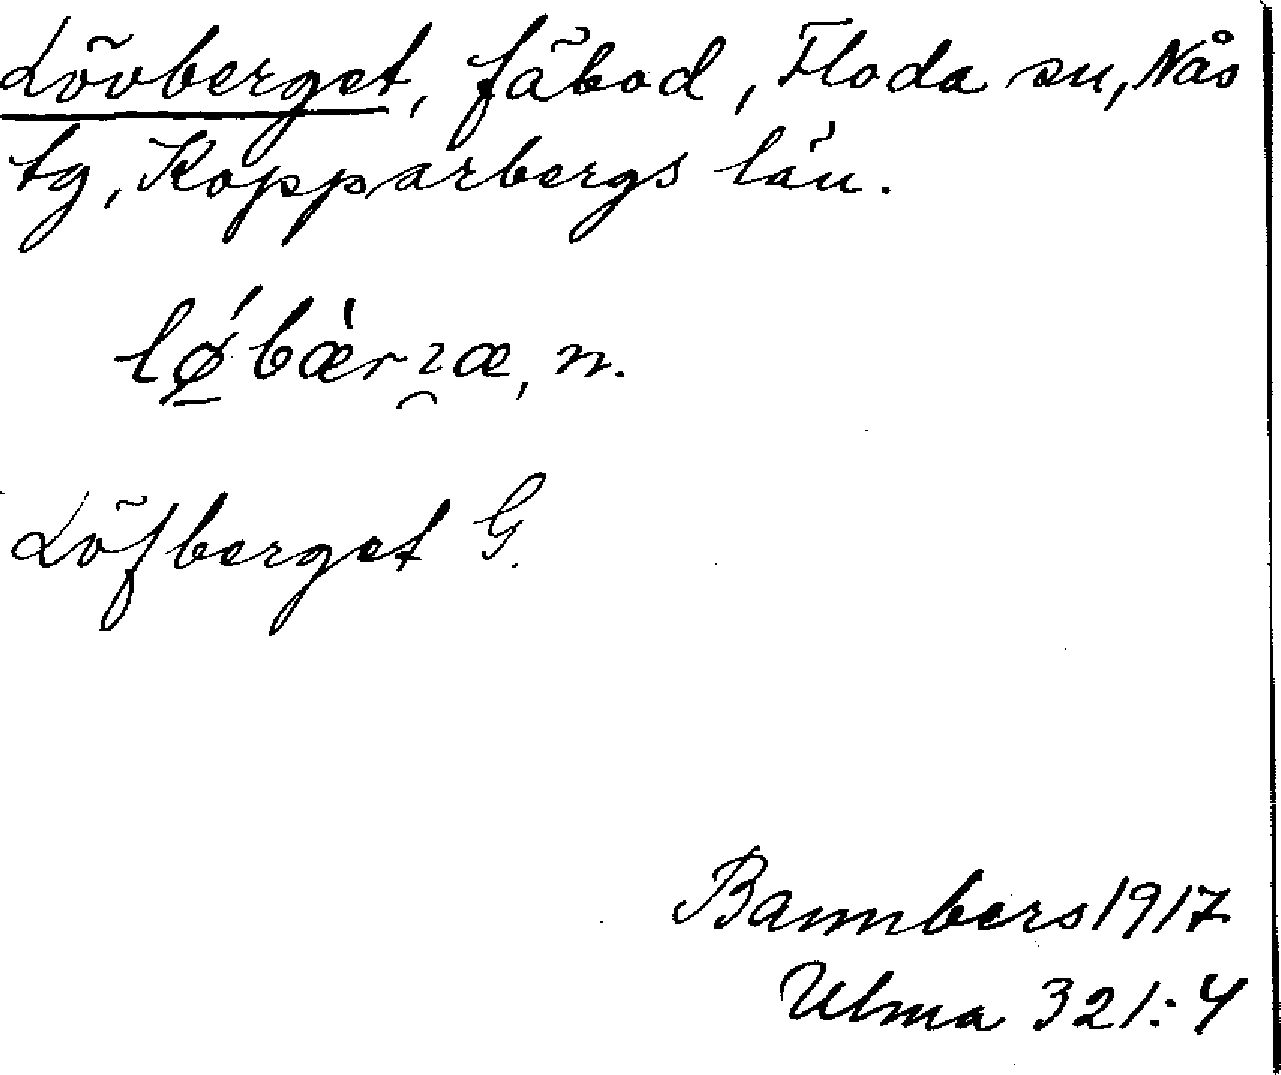 Lövberget, fäbod, Floda sn, Nås
tg, Kopparbergs län.
n.
Löfberget G.
Bannbers 1917
Ulma 321:4